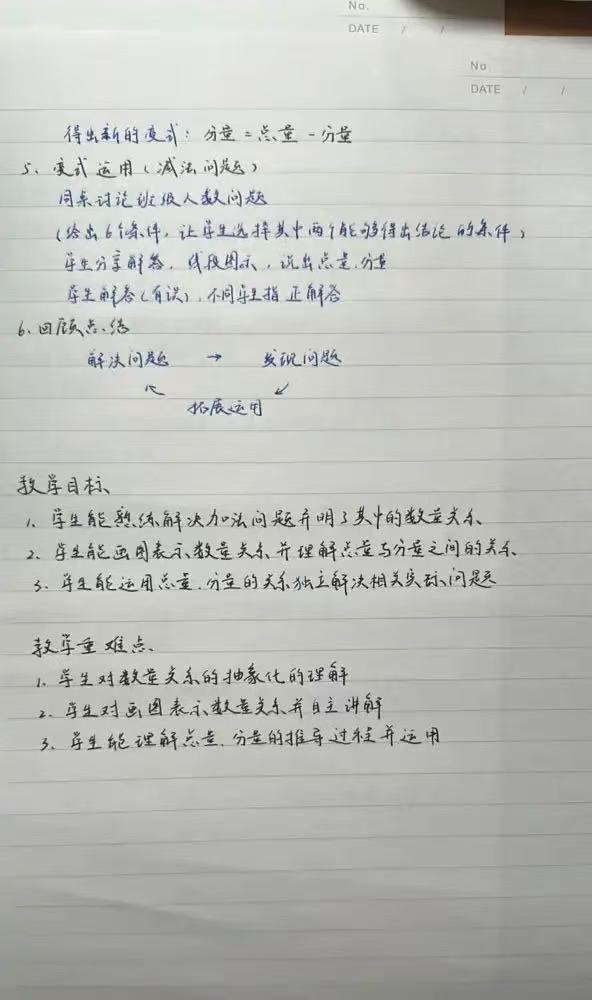 No.
DATE / /
No.
DATE / /
得出新的变式：分量=总量-分量
5、变式运用（减法问题）
同桌讨论班级人数问题
（给出6个条件，让学生选择其中两个能够得出结论的条件）
学生分享解答，线段图示，说出总量、分量
学生解答（有误），不同学生指正解答
6、回顾总结
解决问题 → 发现问题
↖ ↙
拓展运用
教学目标
1、学生能熟练解决加法问题并明了其中的数量关系
2、学生能画图表示数量关系并理解总量与分量之间的关系
3、学生能运用总量、分量的关系独立解决相关实际问题
教学重难点
1、学生对数量关系的抽象化的理解
2、学生对画图表示数量关系并自主讲解
3、学生能理解总量、分量的推导过程并运用